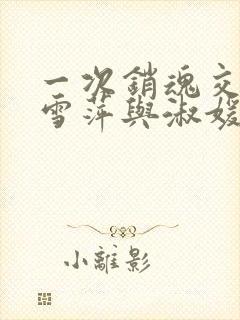 一次銷魂交
雪萍與淑媛
小離影